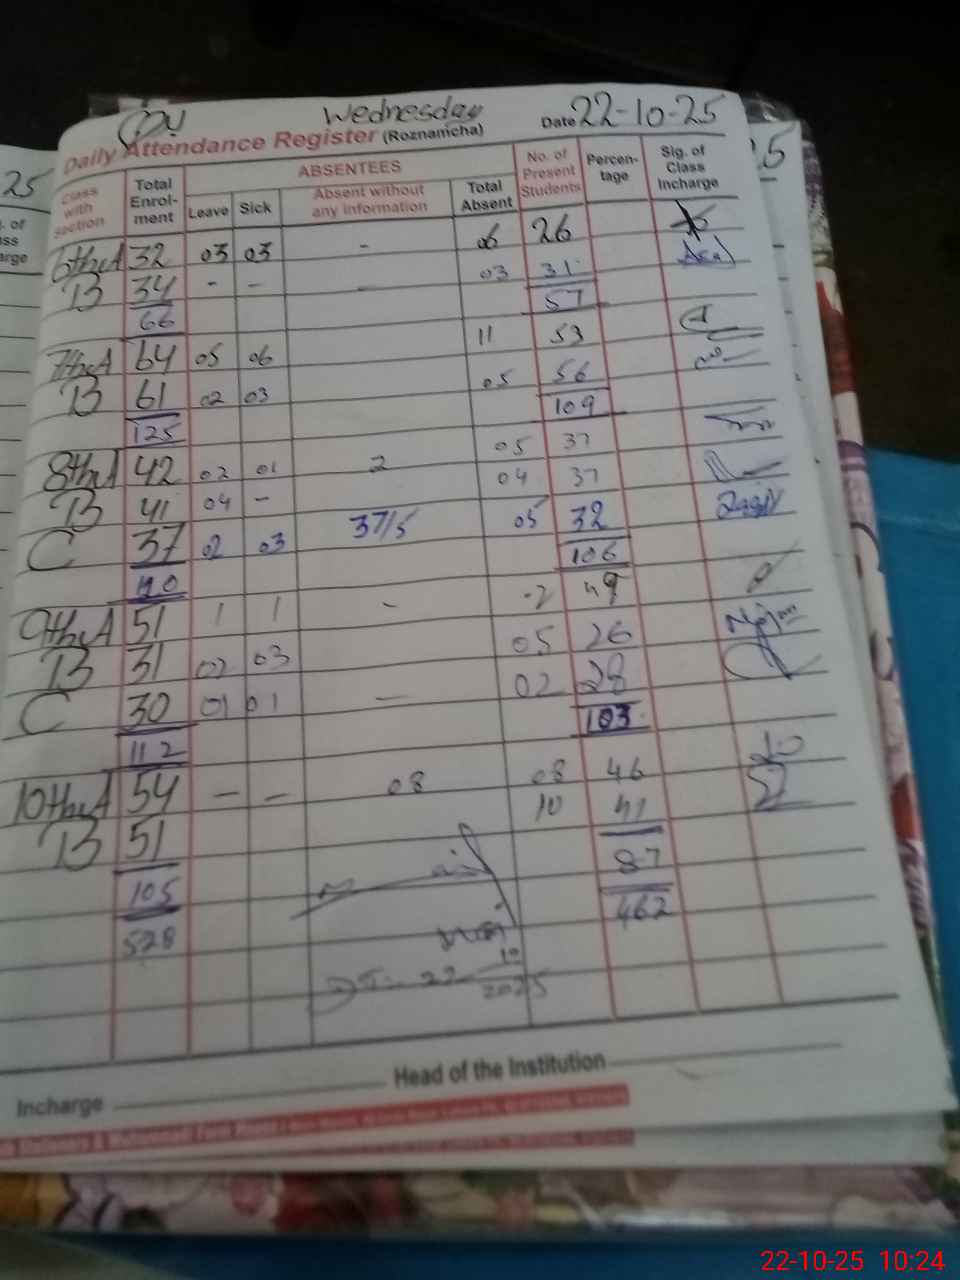 Wednesday Date 22-10-25
Daily Attendance Register (Roznamcha)
Class with section Total Enrol-ment ABSENTEES No. of Present Students Percen-tage Sig. of Class Incharge
Leave Sick Absent without any information Total Absent
6th A 32 03 03 - 06 26
B 34 - - - 03 31
66 57
7th A 64 05 06 11 53
B 61 02 03 05 56
125 109
8th A 42 02 01 2 05 37
B 41 04 - 04 37
C 37 02 03 37/5 05 32
120 106
9th A 51 1 1 - -2 49
B 31 02 03 05 26
C 30 01 01 - 02 28
112 103
10th A 54 - - 08 08 46
B 51 10 41
105 87
528 462
22 10 2025
Head of the Institution
Incharge
25
. of
ss
arge
.5
22-10-25 10:24